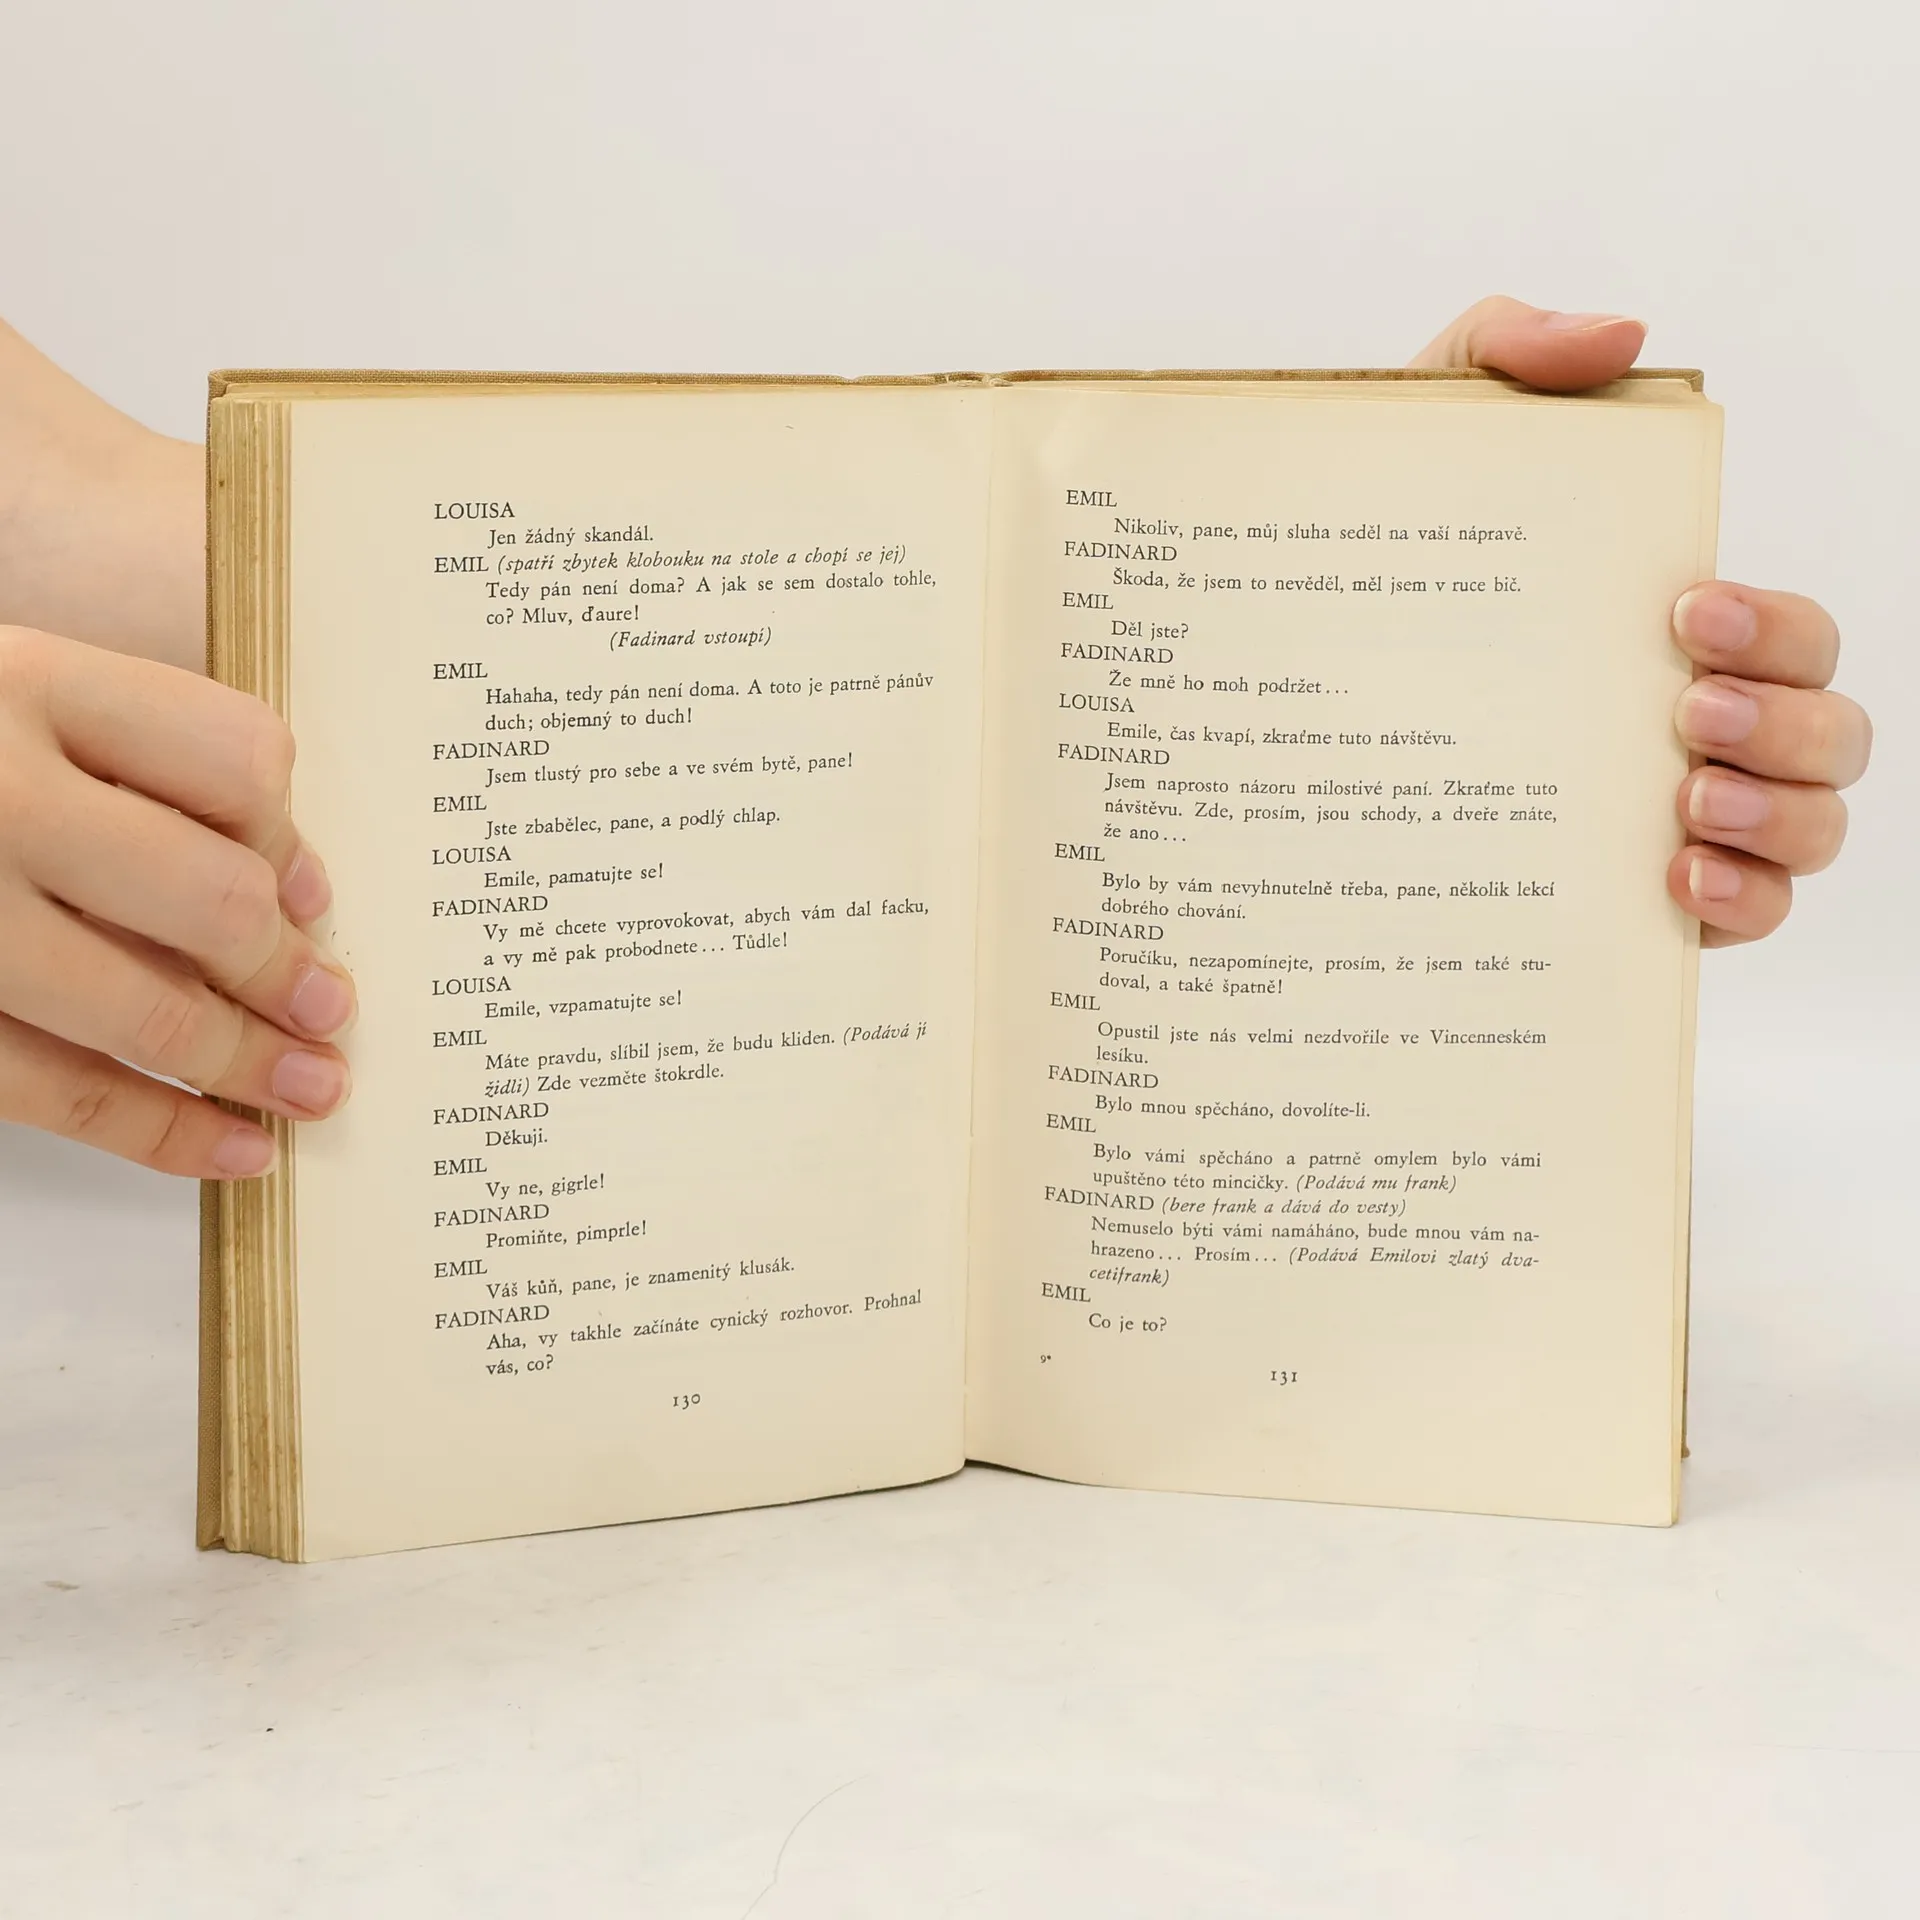 LOUISA
Jen žádný skandál.
EMIL (spatří zbytek klobouku na stole a chopí se jej)
Tedy pán není doma? A jak se sem dostalo tohle,
co? Mluv, ďaure!
(Fadinard vstoupí)
EMIL
Hahaha, tedy pán není doma. A toto je patrně pánův
duch; objemný to duch!
FADINARD
Jsem tlustý pro sebe a ve svém bytě, pane!
EMIL
Jste zbabělec, pane, a podlý chlap.
LOUISA
Emile, pamatujte se!
FADINARD
Vy mě chcete vyprovokovat, abych vám dal facku,
a vy mě pak probodnete... Tůdle!
LOUISA
Emile, vzpamatujte se!
EMIL
Máte pravdu, slíbil jsem, že budu kliden. (Podává jí
židli) Zde vezměte štokrdle.
FADINARD
Děkuji.
EMIL
Vy ne, gigrle!
FADINARD
Promiňte, pimprle!
EMIL
Váš kůň, pane, je znamenitý klusák.
FADINARD
Aha, vy takhle začínáte cynický rozhovor. Prohnal
vás, co?
130
EMIL
Nikoliv, pane, můj sluha seděl na vaší nápravě.
FADINARD
Škoda, že jsem to nevěděl, měl jsem v ruce bič.
EMIL
Děl jste?
FADINARD
Že mně ho moh podržet...
LOUISA
Emile, čas kvapí, zkraťme tuto návštěvu.
FADINARD
Jsem naprosto názoru milostivé paní. Zkraťme tuto
návštěvu. Zde, prosím, jsou schody, a dveře znáte,
že ano...
EMIL
Bylo by vám nevyhnutelně třeba, pane, několik lekcí
dobrého chování.
FADINARD
Poručíku, nezapomínejte, prosím, že jsem také stu-
doval, a také špatně!
EMIL
Opustil jste nás velmi nezdvořile ve Vincenneském
lesíku.
FADINARD
Bylo mnou spěcháno, dovolíte-li.
EMIL
Bylo vámi spěcháno a patrně omylem bylo vámi
upuštěno této mincičky. (Podává mu frank)
FADINARD (bere frank a dává do vesty)
Nemuselo býti vámi namáháno, bude mnou vám na-
hrazeno... Prosím... (Podává Emilovi zlatý dva-
cetifrank)
EMIL
Co je to?
9*
131